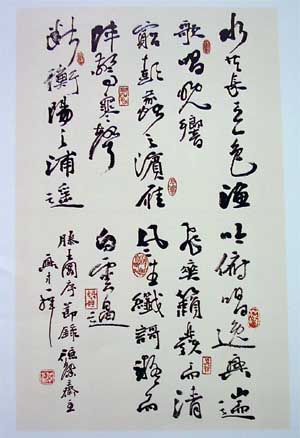 水共長天一色漁
歌唱晚響
窮彭蠡之濱雁
陣驚寒聲
斷衡陽之浦遙
吟俯唱逸興遄
飛爽籟發而清
風生纖歌凝而
白雲遏
滕王閣序節錄 齋主